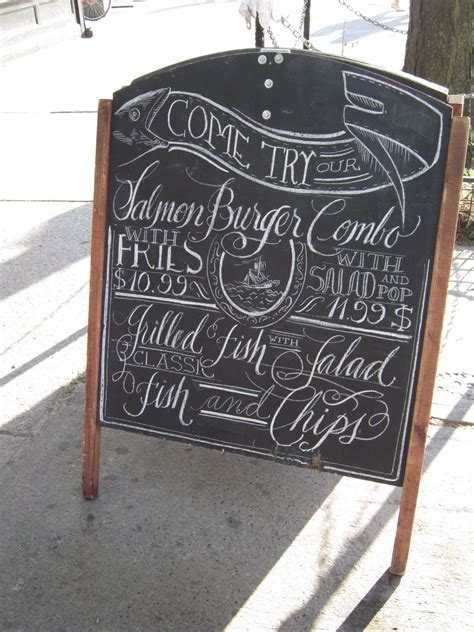 COME TRY OUR
Salmon Burger Combo
WITH FRIES $10.99
WITH SALAD AND POP 11.99 $
Grilled Fish WITH Salad
& CLASSIC
Fish and Chips